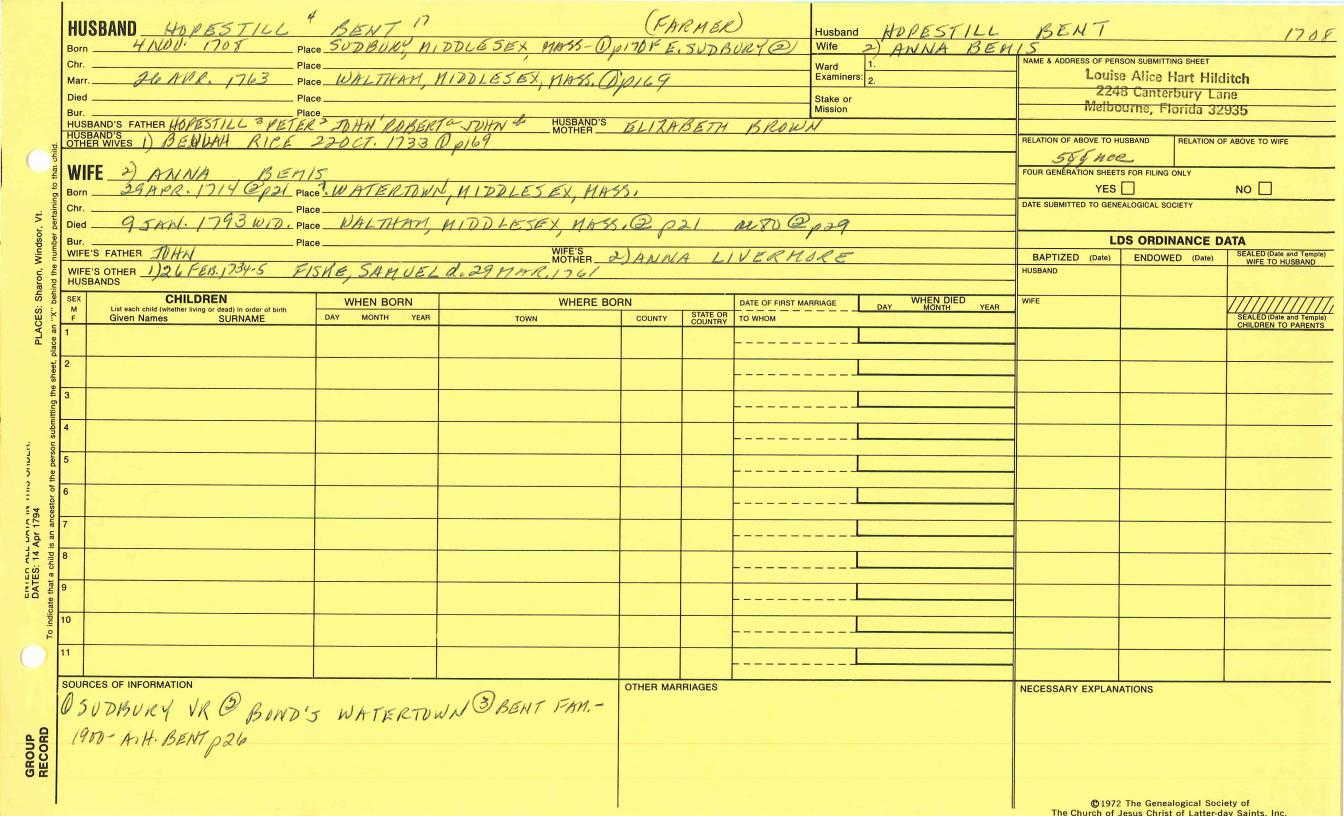 HUSBAND HOPESTILL 4 BENT 17 (FARMER)
Born 4 NOV. 1708 Place SUDBURY, MIDDLESEX, MASS-①p17OF E. SUDBURY②
Chr. Place
Marr. 26 APR. 1763 Place WALTHAM, MIDDLESEX, MASS. ①p169
Died Place
Bur. Place
HUSBAND'S FATHER HOPESTILL 3 PETER 2 JOHN 1 ROBERT a JOHN b HUSBAND'S MOTHER ELIZABETH BROWN
HUSBAND'S OTHER WIVES 1) BEULAH RICE 22 OCT. 1733 ①p169
WIFE 2) ANNA BEMIS
Born 29 APR. 1714 ②p21 Place ?. WATERTOWN, MIDDLESEX, MASS.
Chr. Place
Died 9 JAN. 1793 WID. Place WALTHAM, MIDDLESEX, MASS. ② p21 ae 80 ② p29
Bur. Place
WIFE'S FATHER JOHN WIFE'S MOTHER 2) ANNA LIVERMORE
WIFE'S OTHER HUSBANDS 1) 26 FEB. 1734-5 FISKE, SAMUEL d. 29 MAR. 1761
Husband HOPESTILL BENT 1708
Wife 2) ANNA BEMIS
Ward Examiners: 1.
2.
Stake or Mission
NAME & ADDRESS OF PERSON SUBMITTING SHEET
Louise Alice Hart Hilditch
2248 Canterbury Lane
Melbourne, Florida 32935
RELATION OF ABOVE TO HUSBAND RELATION OF ABOVE TO WIFE
FOUR GENERATION SHEETS FOR FILING ONLY
YES NO
DATE SUBMITTED TO GENEALOGICAL SOCIETY
LDS ORDINANCE DATA
BAPTIZED (Date) ENDOWED (Date) SEALED (Date and Temple) WIFE TO HUSBAND
HUSBAND
WIFE
SEALED (Date and Temple) CHILDREN TO PARENTS
SEX M F CHILDREN WHEN BORN WHERE BORN DATE OF FIRST MARRIAGE WHEN DIED
List each child (whether living or dead) in order of birth
Given Names SURNAME DAY MONTH YEAR TOWN COUNTY STATE OR COUNTRY TO WHOM DAY MONTH YEAR
1
2
3
4
5
6
7
8
9
10
11
SOURCES OF INFORMATION
① SUDBURY VR ② BOND'S WATERTOWN ③ BENT FAM.-
1900- A.H. BENT p26
OTHER MARRIAGES
NECESSARY EXPLANATIONS
©1972 The Genealogical Society of
The Church of Jesus Christ of Latter-day Saints, Inc.
GROUP RECORD
ENTER ALL DATA IN THIS ORDER:
DATES: 14 Apr 1794
PLACES: Sharon, Windsor, Vt.
To indicate that a child is an ancestor of the person submitting the sheet, place an "X" behind the number pertaining to that child.